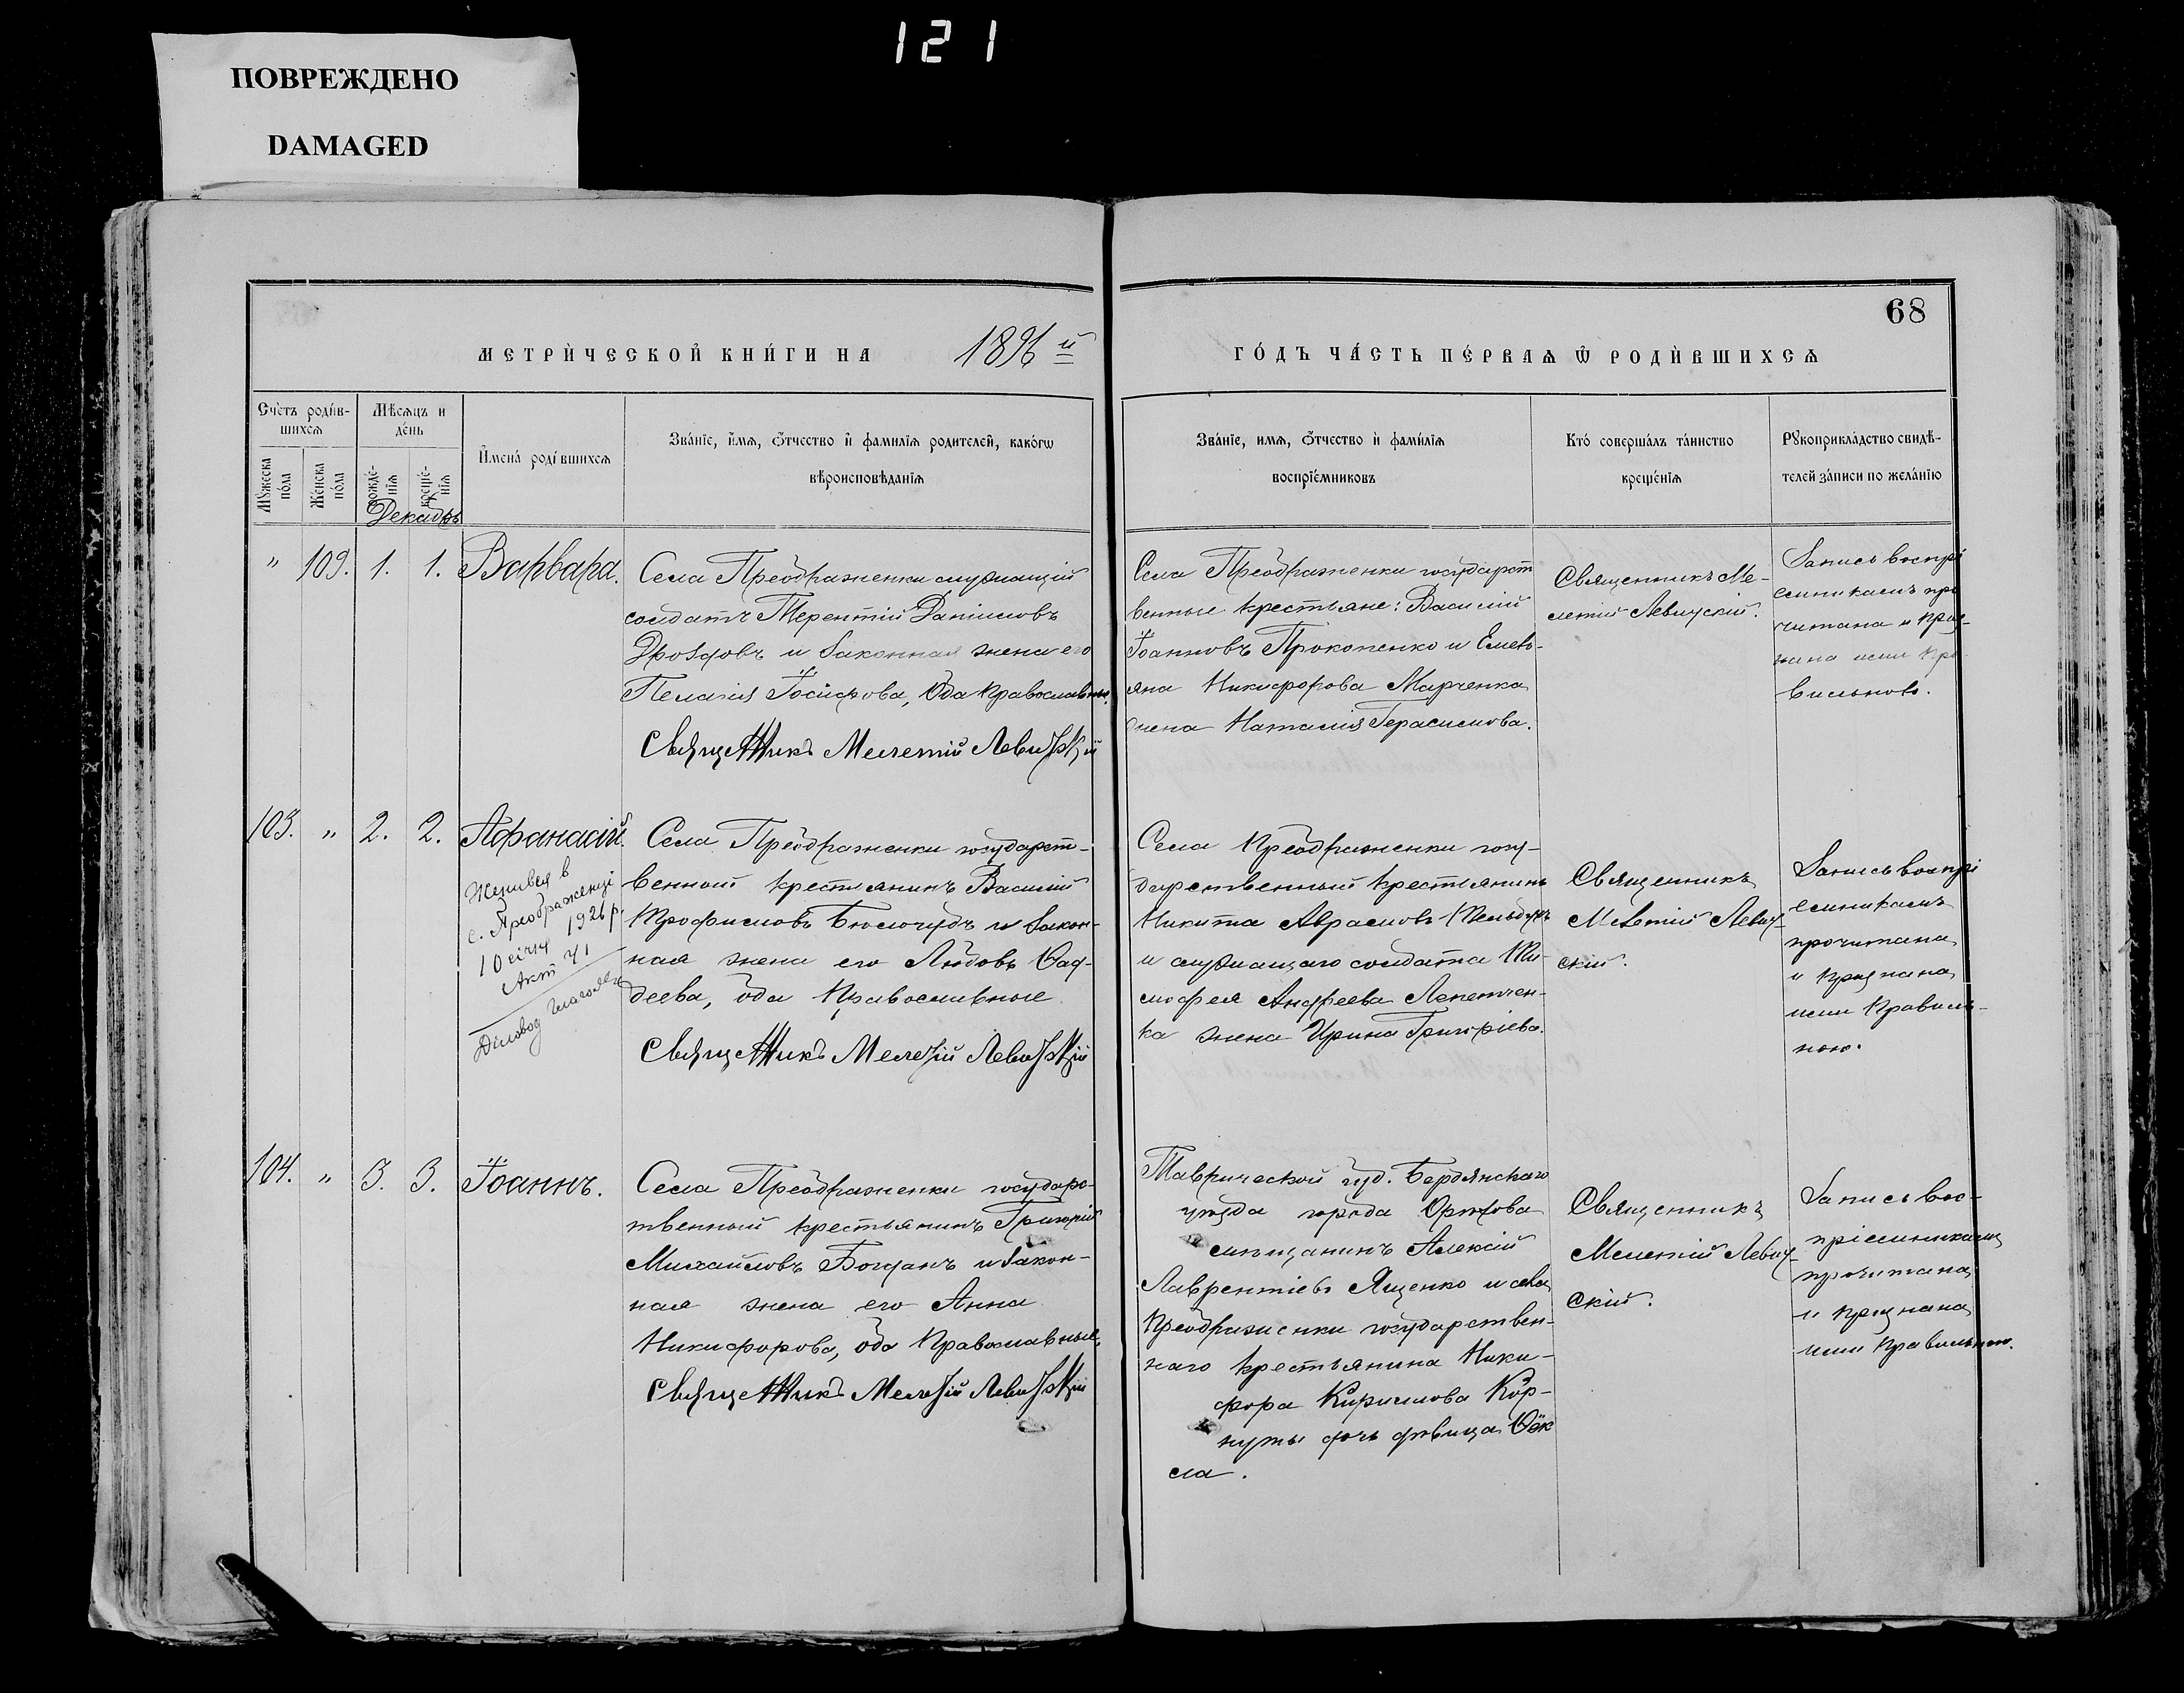 121
ПОВРЕЖДЕНО
DAMAGED
68
МЕТРИЧЕСКОЙ КНИГИ НА 1896й
ГОДЪ ЧАСТЬ ПЕРВАЯ Ѡ РОДИВШИХСЯ
Счетъ родив-
шихся
Мѣсяцъ и
день
Имена родившихся
Званіе, имя, отчество и фамилія родителей, какогѡ
вѣроисповѣданія
Мужеска
пола
Женска
пола
рожде-
нія
креще-
нія
Декабрь
Званіе, имя, отчество и фамилія
воспріемниковъ
Кто совершалъ таинство
крещенія
Рукоприкладство свидѣ-
телей записи по желанію
" 109. 1. 1. Варвара.
Села Преображенки служащій
солдатъ Терентій Даніиловъ
Дроздовъ и законная жена его
Пелагія Іосифова, оба православные.
Священникъ Мелетій Левитскій
Села Преображенки государст
венные крестьяне: Василій
Іоанновъ Прокопенко и Емель-
яна Никифорова Марченка
жена Наталія Герасимова.
Священникъ Ме-
летій Левитскій.
Запись воспрі
емникамъ про
читана и приз-
нана ими пра
вильною.
103. " 2. 2. Афанасій.
Женився в
с. Преображенці
10 січня 1926 р.
Акт Ч 1
Діловод
Села Преображенки государст-
венный крестьянинъ Василій
Трофимовъ и закон-
ная жена его Любовь Фад-
деева, оба православные
Священникъ Мелетій Левитскій
Села Преображенки госу-
дарственный крестьянинъ
Никита Аврамовъ
и служащаго солдата Ти-
мофея Андреева Лепетчен-
ка жена Ирина Григоріева.
Священникъ
Мелетій Левит-
скій.
Запись воспрі
емникамъ
прочитана
и признана
ими правиль-
ною.
104. " 3. 3. Іоаннъ.
Села Преображенки государс-
твенный крестьянинъ Григорій
Михайловъ Богданъ и закон-
ная жена его Анна
Никифорова, оба православные.
Священникъ Мелетій Левитскій
Таврической губ. Бердянскаго
уѣзда города Орѣхова
мѣщанинъ Алексій
Лаврентіевъ Ященко и села
Преображенки государствен-
наго крестьянина Ники-
фора Кириллова Кор-
нуты дочь дѣвица Фек
ла.
Священникъ
Мелетій Левит-
скій.
Запись вос-
пріемникамъ
прочитана
и признана
ими правильною.